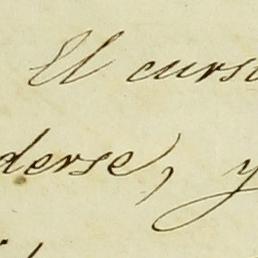 El curs
derse, y